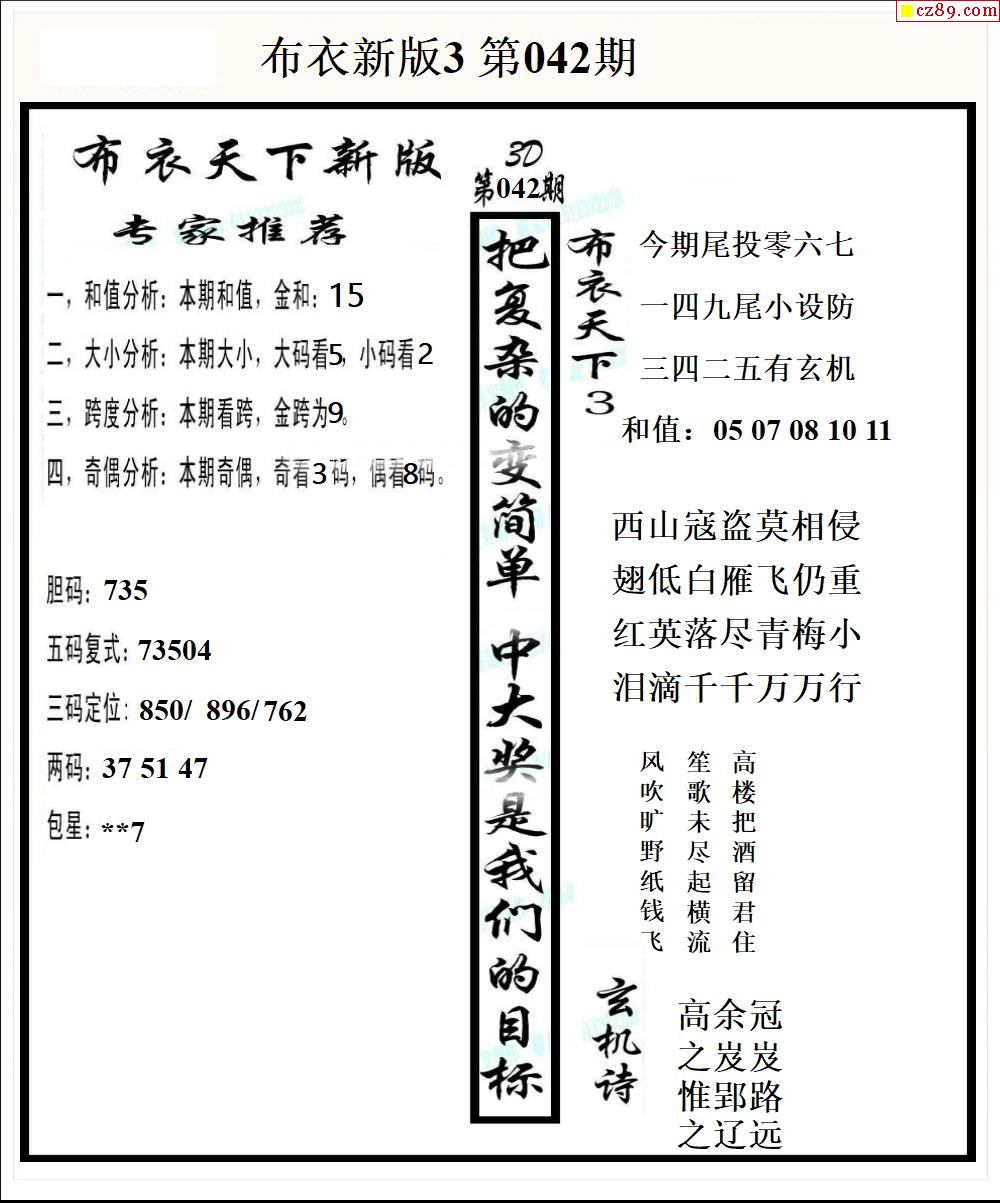 cz89.com
布衣新版3 第042期
布衣天下新版
专家推荐
一，和值分析：本期和值，金和：15
二，大小分析：本期大小，大码看5，小码看2
三，跨度分析：本期看跨，金跨为9。
四，奇偶分析：本期奇偶，奇看3码，偶看8码。
胆码：735
五码复式：73504
三码定位：850/ 896/ 762
两码：37 51 47
包星：**7
3D
第042期
把复杂的变简单 中大奖是我们的目标
布衣天下3
今期尾投零六七
一四九尾小设防
三四二五有玄机
和值：05 07 08 10 11
西山寇盗莫相侵
翅低白雁飞仍重
红英落尽青梅小
泪滴千千万万行
高楼把酒留君住
笙歌未尽起横流
风吹旷野纸钱飞
玄机诗
高余冠
之岌岌
惟郢路
之辽远